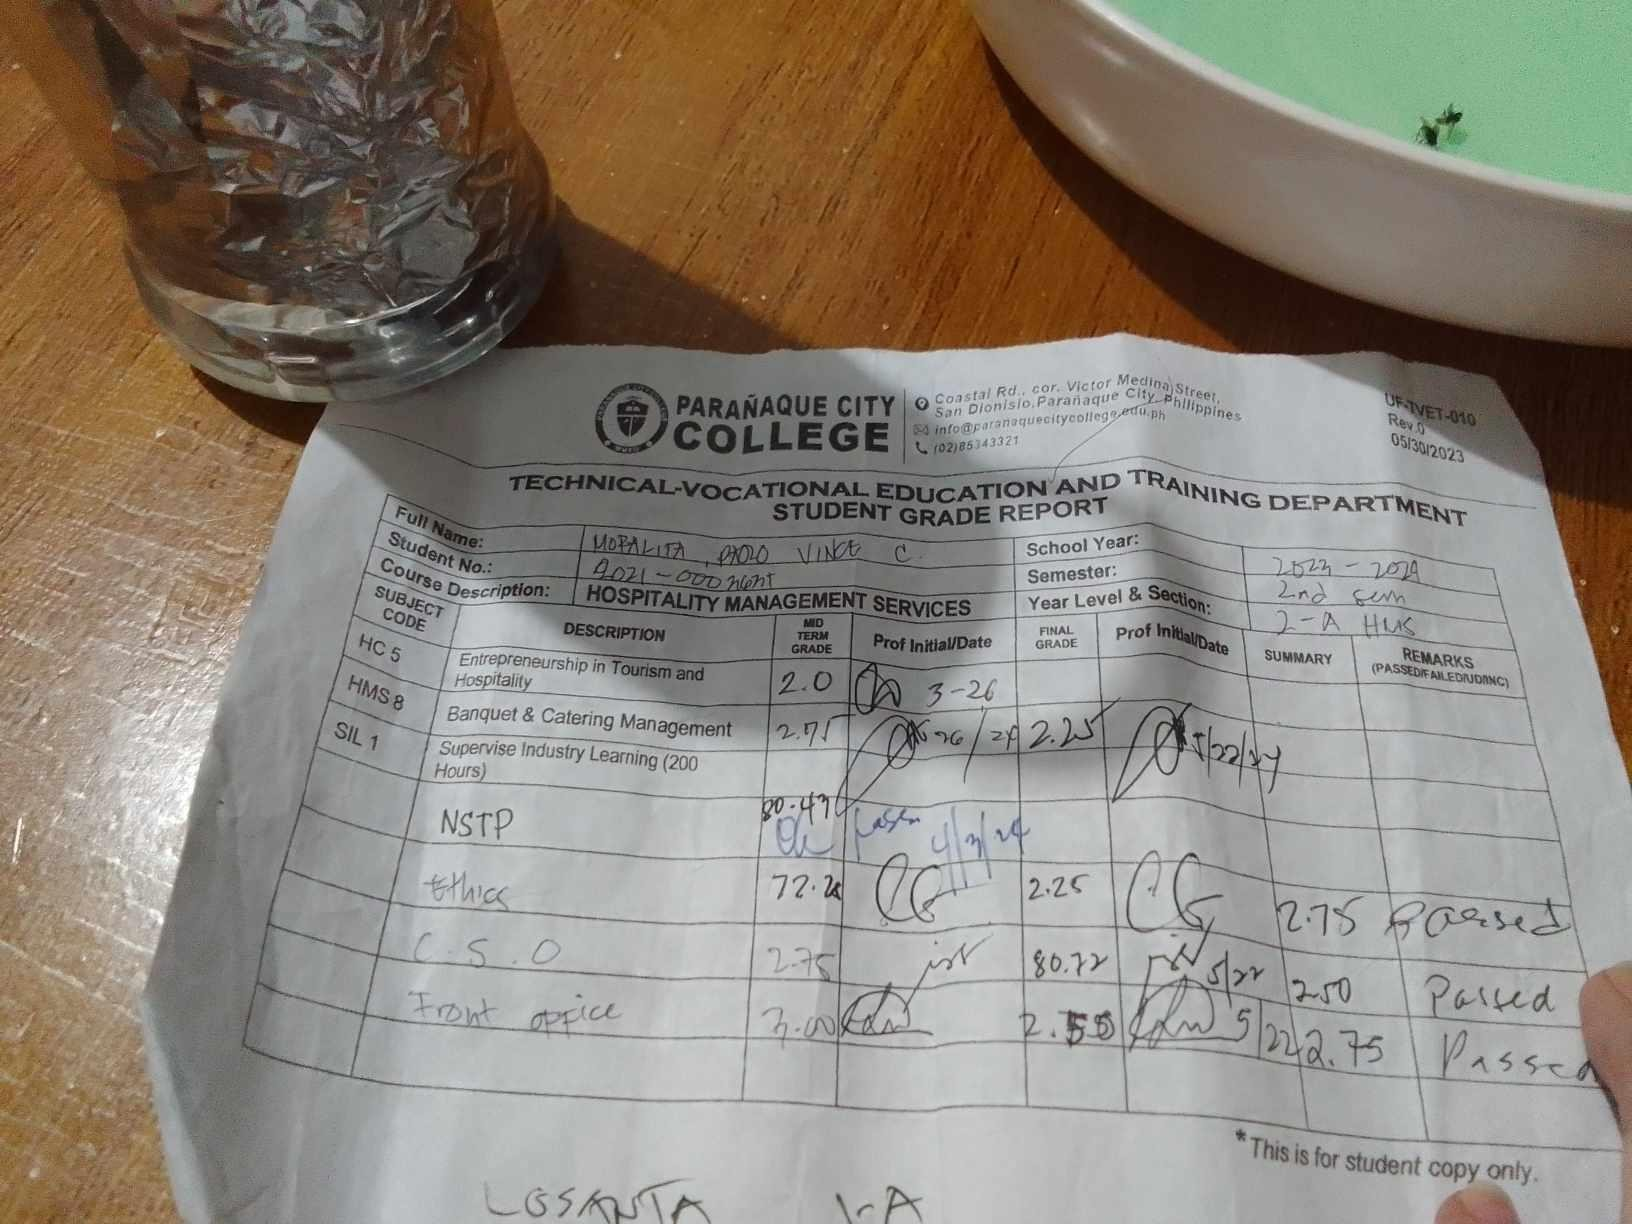 PARAÑAQUE CITY
COLLEGE
Coastal Rd., cor. Victor Medina Street,
San Dionisio, Parañaque City, Philippines
info@paranaquecitycollege.edu.ph
(02)85343321
UF-TVET-010
Rev.0
05/30/2023
TECHNICAL-VOCATIONAL EDUCATION AND TRAINING DEPARTMENT
STUDENT GRADE REPORT
Full Name: VINCE C. School Year: 2023 - 2024
Student No.: Semester: 2nd sem
Course Description: HOSPITALITY MANAGEMENT SERVICES Year Level & Section: 2-A HMS
SUBJECT CODE DESCRIPTION MID TERM GRADE Prof Initial/Date FINAL GRADE Prof Initial/Date SUMMARY REMARKS (PASSED/FAILED/UD/INC)
HC 5 Entrepreneurship in Tourism and Hospitality 2.0 3-26
HMS 8 Banquet & Catering Management 2.75 26/24 2.25 5/22/24
SIL 1 Supervise Industry Learning (200 Hours)
NSTP 80.43 4/3/24
Ethics 2.25 2.75 Passed
C.S.O 2.75 80.72 5/22 2.50 Passed
Front office 3.00 5/22 2.75 Passed
*This is for student copy only.
LOSANTA 1-A